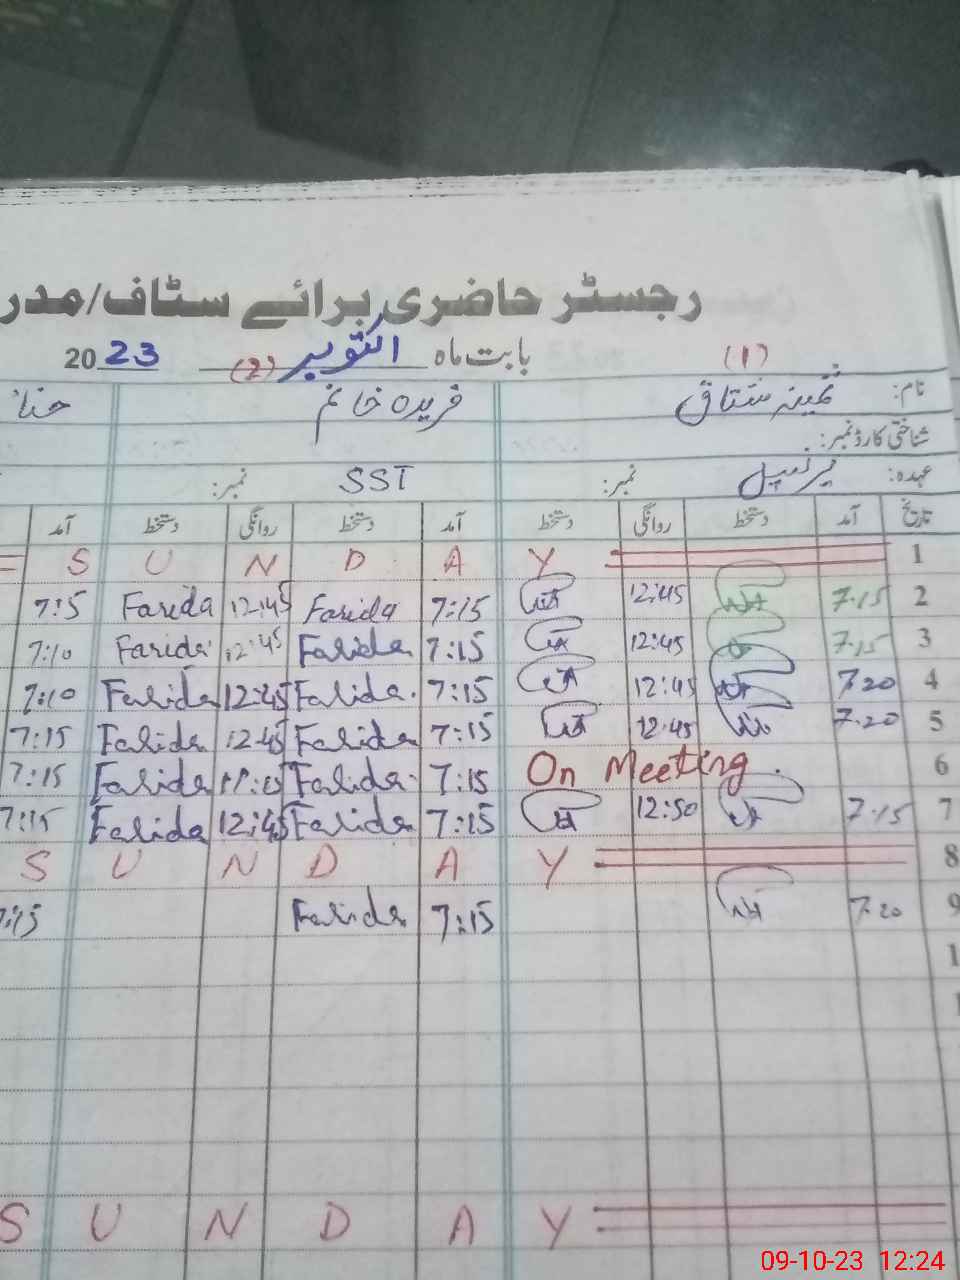 رجسٹر حاضری برائے سٹاف/مدر
(1) بابت ماہ اکتوبر (2) 2023
نام: ثمینہ مشتاق فریدہ خانم حنا
شناختی کارڈ نمبر:
عہدہ: پرنسپل نمبر: SST نمبر:
تاریخ آمد دستخط روانگی دستخط آمد دستخط روانگی دستخط آمد
1 S U N D A Y
2 7:15 12:45 7:15 Farida 12:45 Farida 7:5
3 7:15 12:45 7:15 Farida 12:45 Farida 7:10
4 7:20 12:45 7:15 Farida 12:45 Farida 7:10
5 7:20 12:45 7:15 Farida 12:45 Farida 7:15
6 On Meeting 7:15 Farida Farida 7:15
7 7:15 12:50 7:15 Farida 12:45 Farida 7:15
8 S U N D A Y
9 7:20 7:15 Farida 7:15
1
S U N D A Y
09-10-23 12:24